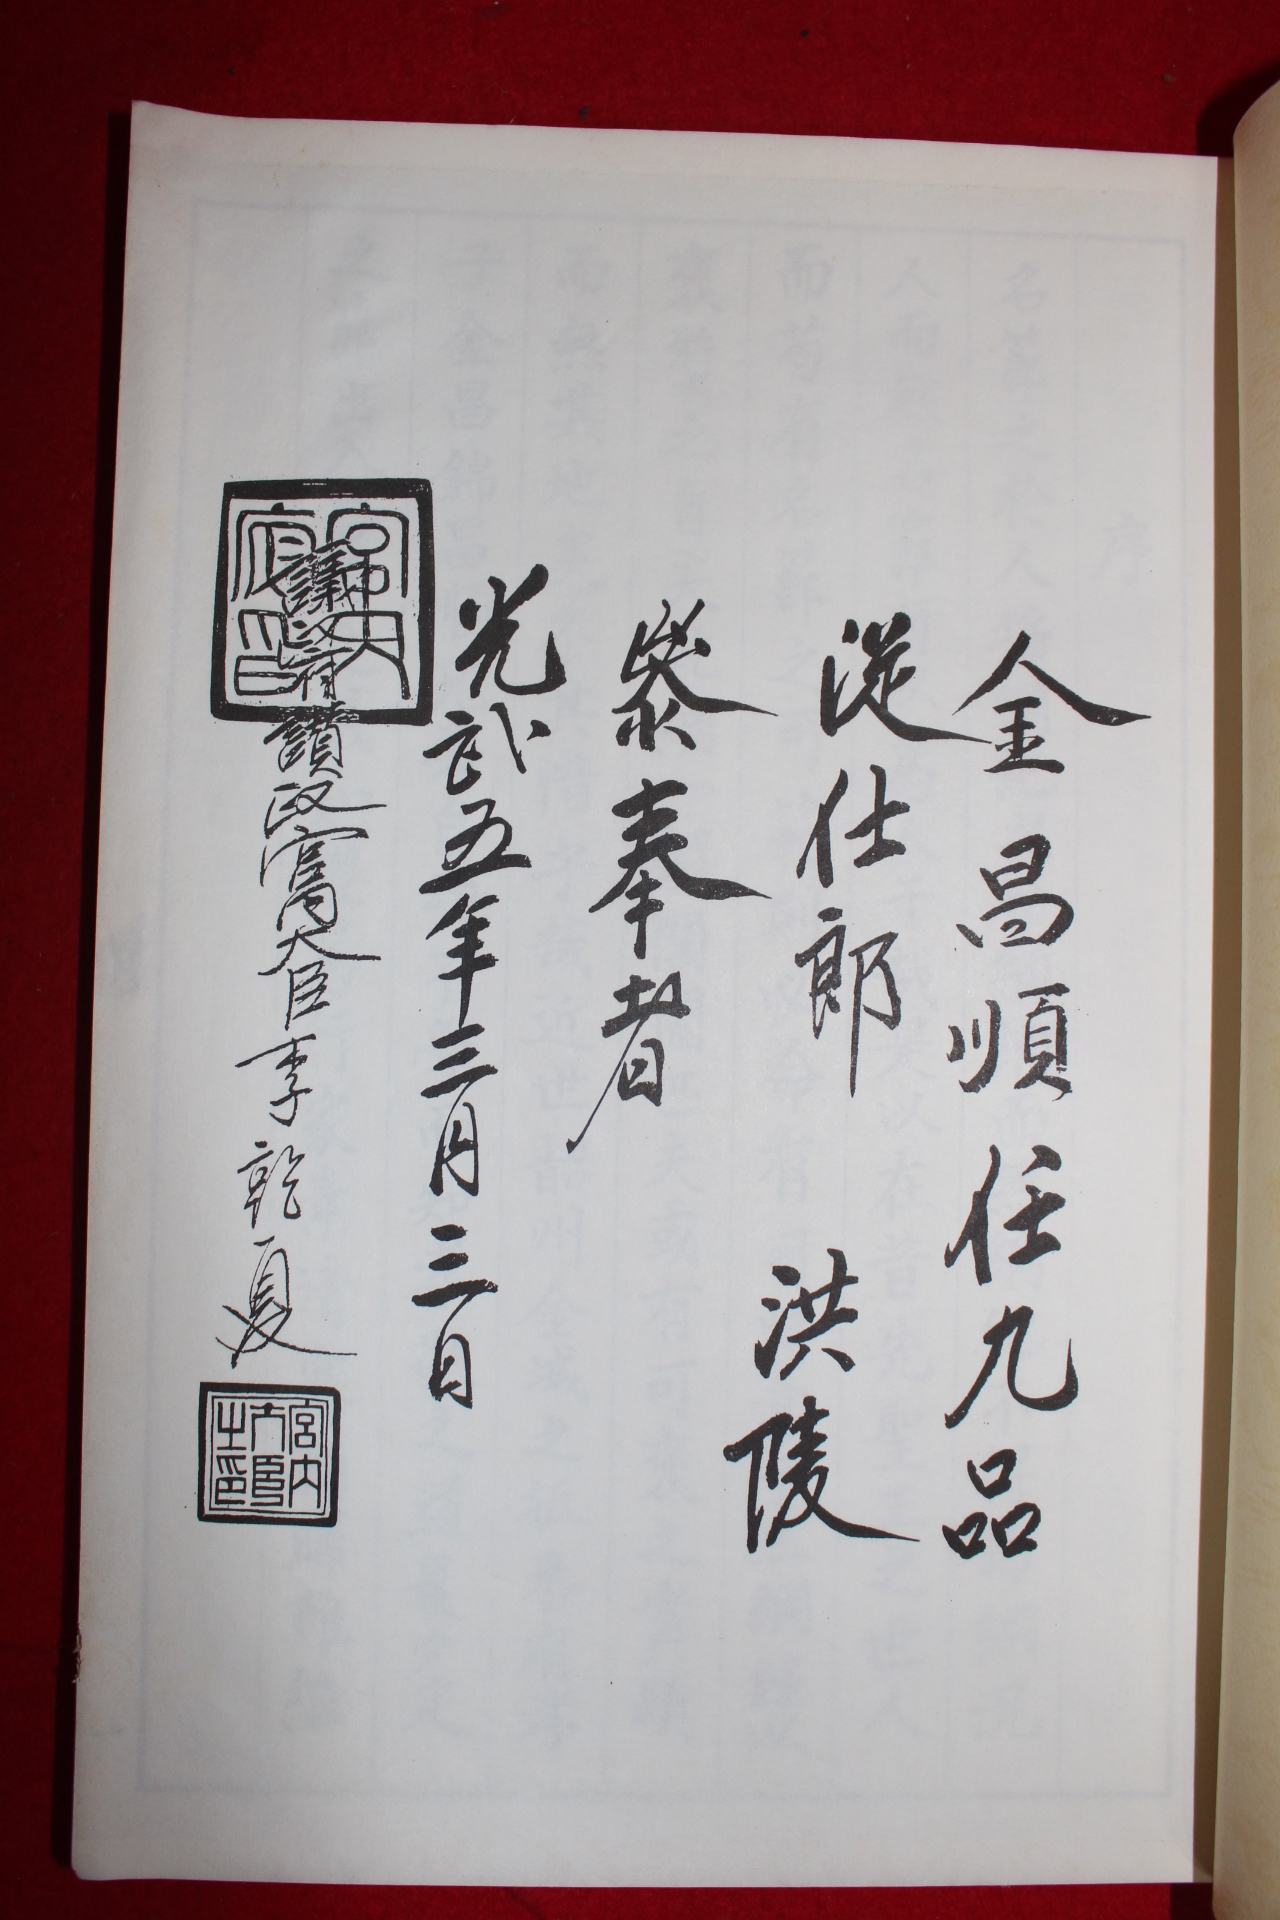 金昌順任九品
從仕郎 洪陵
叅奉者
光武五年三月三日
議政府贊政宮內大臣李乾夏
宮內府印
宮內大臣之印
序